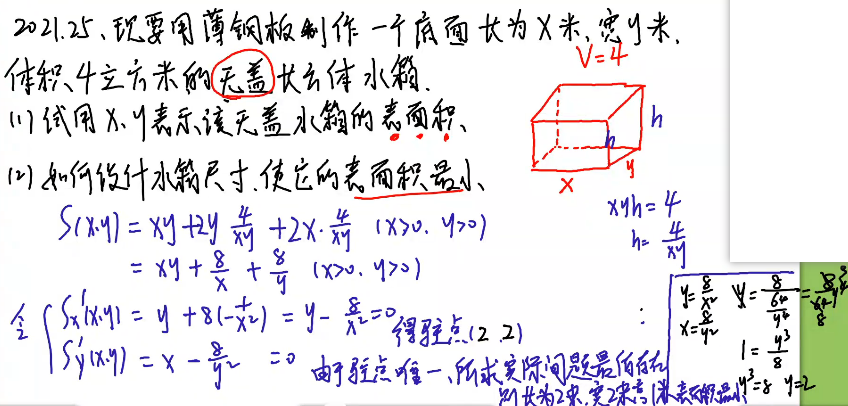 2021.25、现要用薄钢板制作一个底面长为x米、宽y米、
体积、4立方米的无盖长方体水箱.
(1)试用x、y表示该无盖水箱的表面积、
(2)如何设计水箱尺寸、使它的表面积最小、
V=4
h
h
y
x
xyh=4
h=4/xy
S(x,y)=xy+2y 4/xy+2x·4/xy (x>0, y>0)
=xy+8/x+8/y (x>0, y>0)
令
Sx'(x,y)=y+8(-1/x²)=y-8/x²=0
Sy'(x,y)=x-8/y²=0
得驻点(2,2)
由于驻点唯一、所求实际问题最值存在
则长为2米,宽2米高1米表面积最小
y=8/x²
x=8/y²
1=y³/8
y³=8 y=2